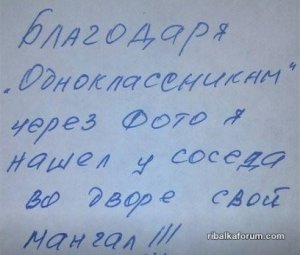 Благодаря
"Одноклассникам"
через Фото я
нашел у соседа
во дворе свой
мангал !!!
ribalkaforum.com